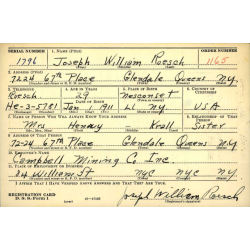 SERIAL NUMBER 1. NAME (Print) ORDER NUMBER
1796 Joseph William Roesch 1165
2. ADDRESS (Print)
7224 67th Place Glendale Queens N.Y.
3. TELEPHONE 4. AGE IN YEARS 5. PLACE OF BIRTH 6. COUNTRY OF CITIZENSHIP
Roesch. 29 Nesconset
DATE OF BIRTH
He-3-5781 Jan 1 1911 L.I. N.Y. USA
7. NAME OF PERSON WHO WILL ALWAYS KNOW YOUR ADDRESS 8. RELATIONSHIP OF THAT PERSON
Mrs Henry Kroll Sister
9. ADDRESS OF THAT PERSON
72-24 67th Place Glendale Queens N.Y.
10. EMPLOYER'S NAME
Campbell Mining Co Inc.
11. PLACE OF EMPLOYMENT OR BUSINESS
84 William St NYC NYC N.Y.
I AFFIRM THAT I HAVE VERIFIED ABOVE ANSWERS AND THAT THEY ARE TRUE.
REGISTRATION CARD
D. S. S. Form 1 Joseph William Roesch